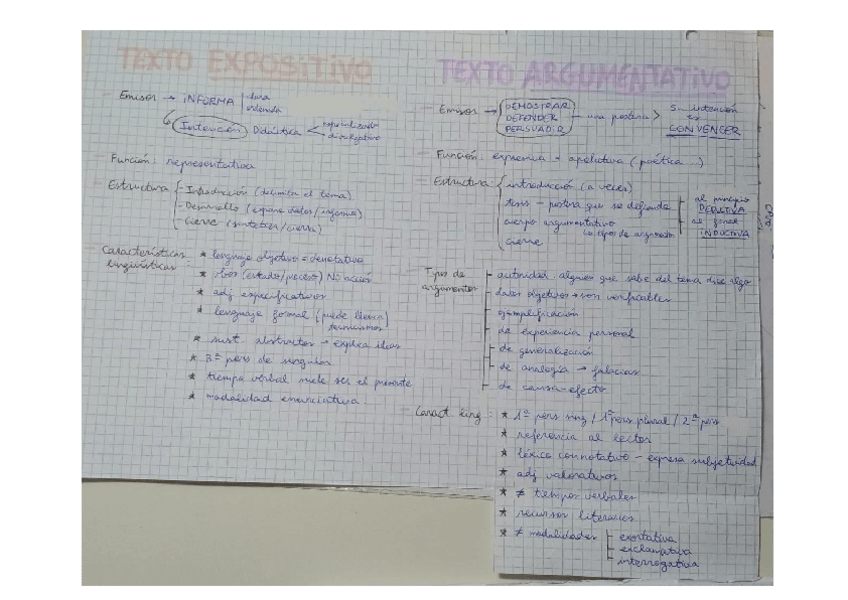 TEXTO EXPOSITIVO
- Emisor → INFORMA | clara
ordenada
↳ Intención Didáctica < especializado
divulgativo
- Función: representativa
- Estructura { - Introducción (delimita el tema)
- Desarrollo (expone datos/informa)
- Cierre (sintetiza/cierra)
- Características lingüísticas:
* lenguaje objetivo = denotativo
* vbos (estado/proceso) NO acción
* adj especificativos
* lenguaje formal (puede llevar tecnicismos)
* sust. abstractos → explica ideas
* 3ª pers de singular
* tiempo verbal suele ser el presente
* modalidad enunciativa.
TEXTO ARGUMENTATIVO
- Emisor → DEMOSTRAR
DEFENDER
PERSUADIR
una postura > Su intención
es
CONVENCER
- Función: expresiva - apelativa (poética ...)
- Estructura { introducción (a veces)
tesis - postura que se defiende
al principio
DEDUCTIVA
al final
INDUCTIVA
cuerpo argumentativo
↳ tipos de argumentos
cierre
- Tipos de argumentos
autoridad: alguien que sabe del tema dice algo
datos objetivos → son verificables
ejemplificación
de experiencia personal
de generalización
de analogía → falacias
de causa-efecto
- Caract. ling: * 1ª pers sing / 1ª pers plural / 2ª pers
* referencia al lector
* léxico connotativo - expresa subjetividad
* adj valorativos
* ≠ tiempos verbales
* recursos literarios
* ≠ modalidades
exortativa
exclamativa
interrogativa